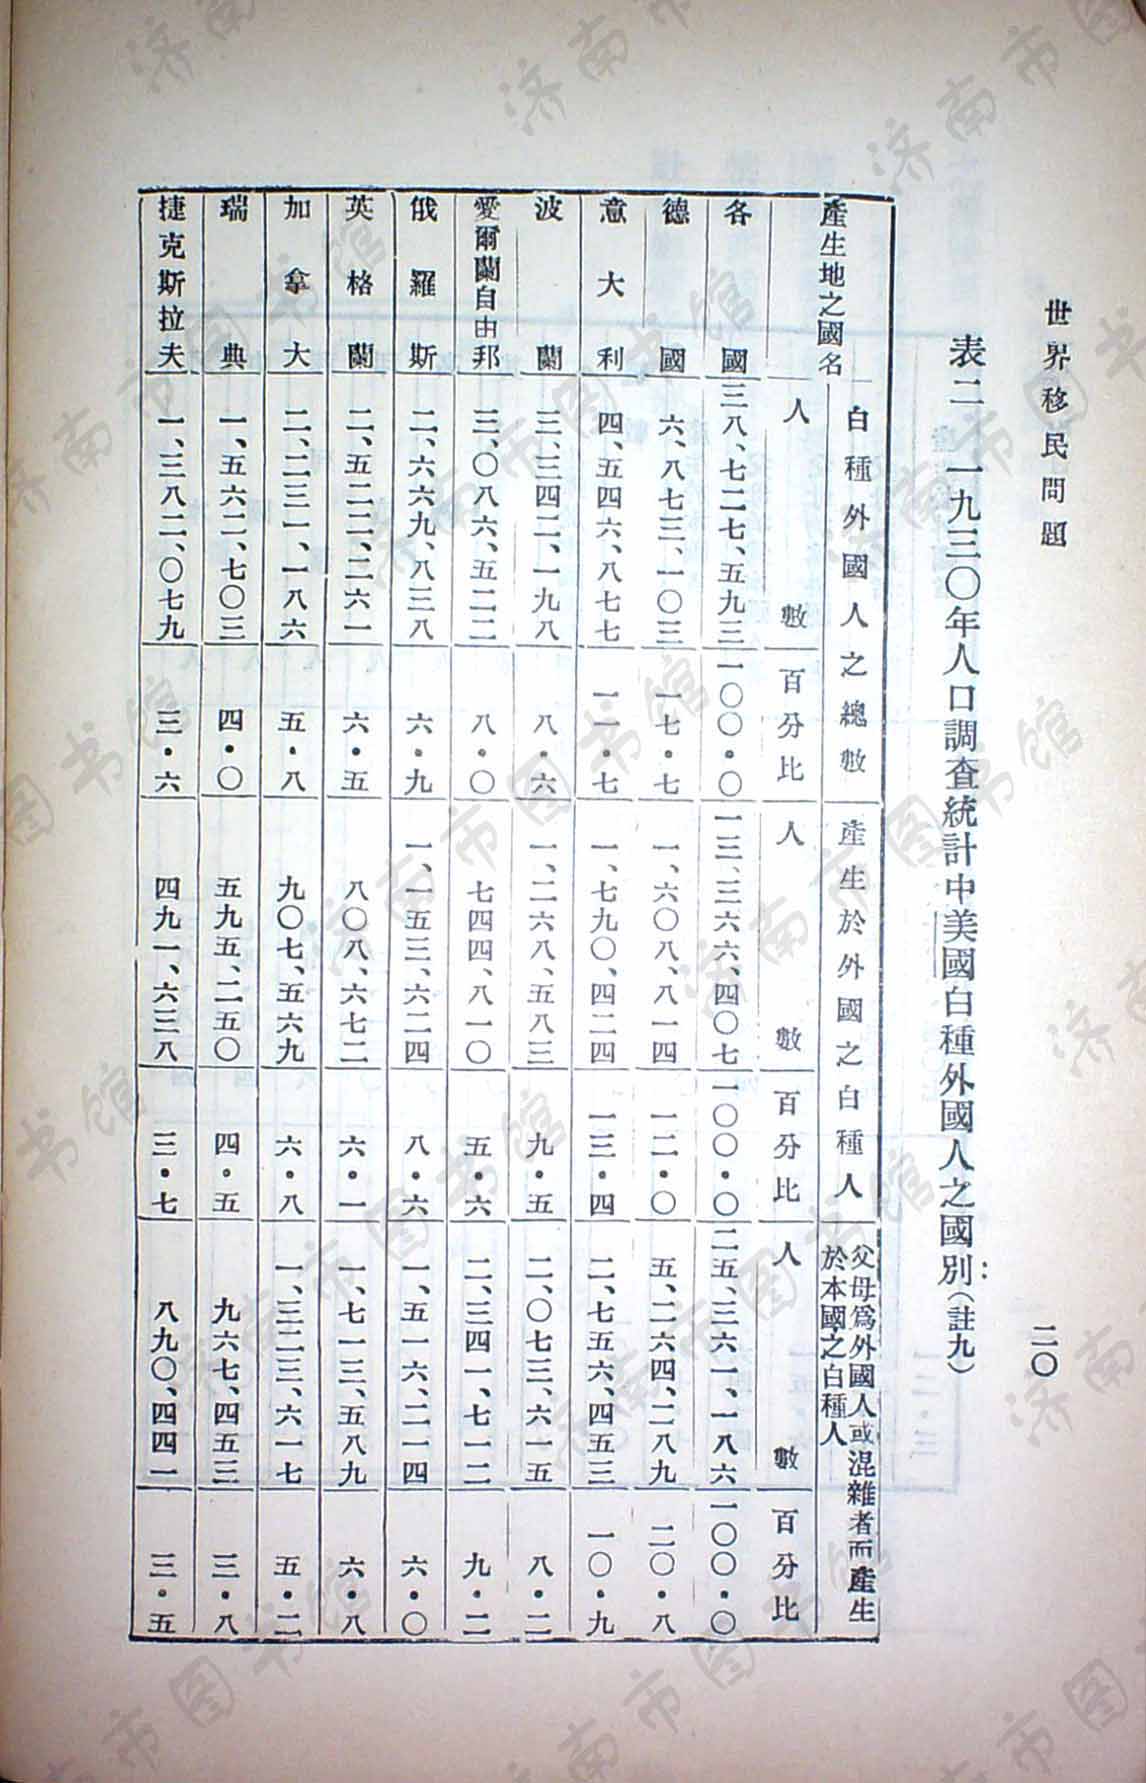 世界移民問題 二〇
表二 一九三〇年人口調查統計中美國白種外國人之國別：（註九）
產生地之國名 白種外國人之總數 產生於外國之白種人 父母爲外國人或混雜者而產生
於本國之白種人
人數 百分比 人數 百分比 人數 百分比
各國 三八、七二七、五九三 一〇〇・〇 一三、三六六、四〇七 一〇〇・〇 二五、三六一、一八六 一〇〇・〇
德國 六、八七三、一〇三 一七・七 一、六〇八、八一四 一二・〇 五、二六四、二八九 二〇・八
意大利 四、五四六、八七七 一一・七 一、七九〇、四二四 一三・四 二、七五六、四五三 一〇・九
波蘭 三、三四二、一九八 八・六 一、二六八、五八三 九・五 二、〇七三、六一五 八・二
愛爾蘭自由邦 三、〇八六、五二二 八・〇 七四四、八一〇 五・六 二、三四一、七一二 九・二
俄羅斯 二、六六九、八三八 六・九 一、一五三、六二四 八・六 一、五一六、二一四 六・〇
英格蘭 二、五二二、二六一 六・五 八〇八、六七二 六・一 一、七一三、五八九 六・八
加拿大 二、二三一、一八六 五・八 九〇七、五六九 六・八 一、三二三、六一七 五・二
瑞典 一、五六二、七〇三 四・〇 五九五、二五〇 四・五 九六七、四五三 三・八
捷克斯拉夫 一、三八二、〇七九 三・六 四九一、六三八 三・七 八九〇、四四一 三・五
济南市图书馆